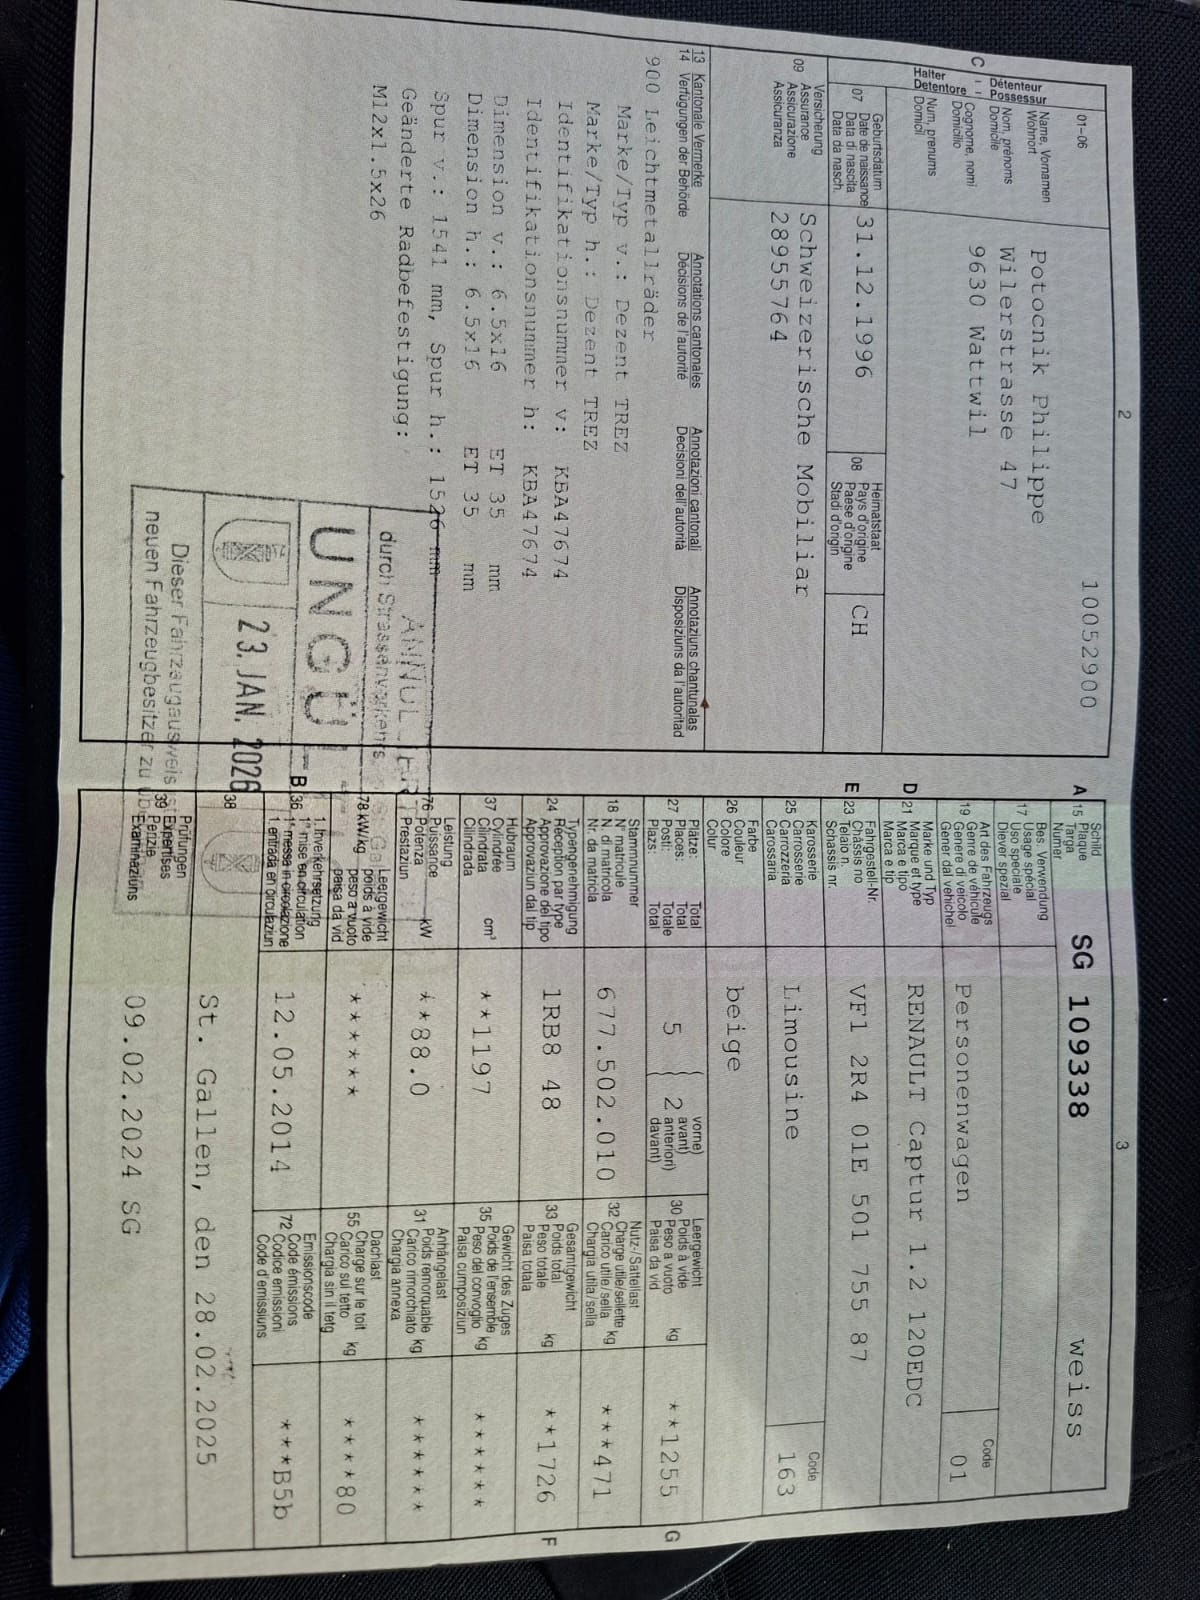 2
10052900
C
Détenteur
Possessur
Halter
Detentore
01-06
Name, Vornamen
Wohnort
Nom, prénoms
Domicile
Cognome, nomi
Domicilio
Num, prenums
Domicil
Potocnik Philippe
Wilerstrasse 47
9630 Wattwil
07
Geburtsdatum
Date de naissance
Data di nascita
Data da nasch.
31.12.1996
08
Heimatstaat
Pays d'origine
Paese d'origine
Stadi d'origin
CH
09
Versicherung
Assurance
Assicurazione
Assicuranza
Schweizerische Mobiliar
28955764
13 Kantonale Vermerke Annotations cantonales Annotazioni cantonali Annotaziuns chantunalas
14 Verfügungen der Behörde Décisions de l'autorité Decisioni dell'autorità Disposiziuns da l'autoritad
900 Leichtmetallräder
Marke/Typ v.: Dezent TREZ
Marke/Typ h.: Dezent TREZ
Identifikationsnummer v: KBA47674
Identifikationsnummer h: KBA47674
Dimension v.: 6.5x16 ET 35 mm
Dimension h.: 6.5x16 ET 35 mm
Spur v.: 1541 mm, Spur h.: 1526 mm
Geänderte Radbefestigung:
M12x1.5x26
durch Strassenverkehrs
23. JAN. 2026
Dieser Fahrzeugausweis ist
neuen Fahrzeugbesitzer zu
3
A 15
Schild
Plaque
Targa
Numer
SG 109338 weiss
17
Bes. Verwendung
Usage spécial
Uso speciale
Diever spezial
19
Art des Fahrzeugs
Genre de véhicule
Genere di veicolo
Gener dal vehichel
Personenwagen
Code
01
D 21
Marke und Typ
Marque et type
Marca e tipo
Marca e tip
RENAULT Captur 1.2 120EDC
E 23
Fahrgestell-Nr.
Châssis no
Telaio n.
Schassis nr.
VF1 2R4 01E 501 755 87
25
Karosserie
Carrosserie
Carrozzeria
Carossaria
Limousine
Code
163
26
Farbe
Couleur
Colore
Colur
beige
27
Plätze: Total
Places: Total
Posti: Totale
Plazs: Total
5
2
vorne)
avant)
anteriori)
davant)
30
Leergewicht
Poids à vide
Peso a vuoto
Paisa da vid
kg
**1255
G
18
Stammnummer
N° matricule
N. di matricola
Nr. da matricla
677.502.010
32
Nutz-/Sattellast
Charge utile/sellette
Carico utile/sella
Chargia utila/sella
kg
***471
24
Typengenehmigung
Réception par type
Approvazione del tipo
Approvaziun dal tip
1RB8 48
33
Gesamtgewicht
Poids total
Peso totale
Paisa totala
kg
**1726
F
37
Hubraum
Cylindrée
Cilindrata
Cilindrada
cm³
**1197
35
Gewicht des Zuges
Poids de l'ensemble
Peso del convoglio
Paisa cumposiziun
kg
******
76
Leistung
Puissance
Potenza
Prestaziun
kW
**88.0
31
Anhängelast
Poids remorquable
Carico rimorchiato
Chargia annexa
kg
******
78 kW/kg
Leergewicht
poids à vide
peso a vuoto
paisa da vid
******
55
Dachlast
Charge sur le toit
Carico sul tetto
Chargia sin il tetg
kg
****80
B 36
1. Inverkehrsetzung
1re mise en circulation
1a messa in circolazione
1. entrada en circulaziun
12.05.2014
72
Emissionscode
Code émissions
Codice emissioni
Code d'emissiuns
***B5b
38
St. Gallen, den 28.02.2025
39
Prüfungen
Expertises
Perizie
Examinaziuns
09.02.2024 SG